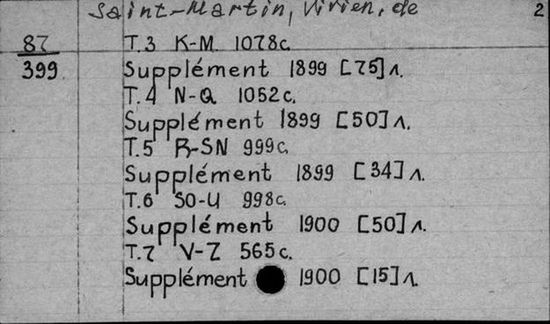 Saint-Martin, Vivien, de 2
87 T.3 K-M 1078c.
399 Supplément 1899 [75]л.
T.4 N-Q 1052c.
Supplément 1899 [50]л.
T.5 R-SN 999c.
Supplément 1899 [34]л.
T.6 SO-U 998c.
Supplément 1900 [50]л.
T.7 V-Z 565c.
Supplément 1900 [15]л.